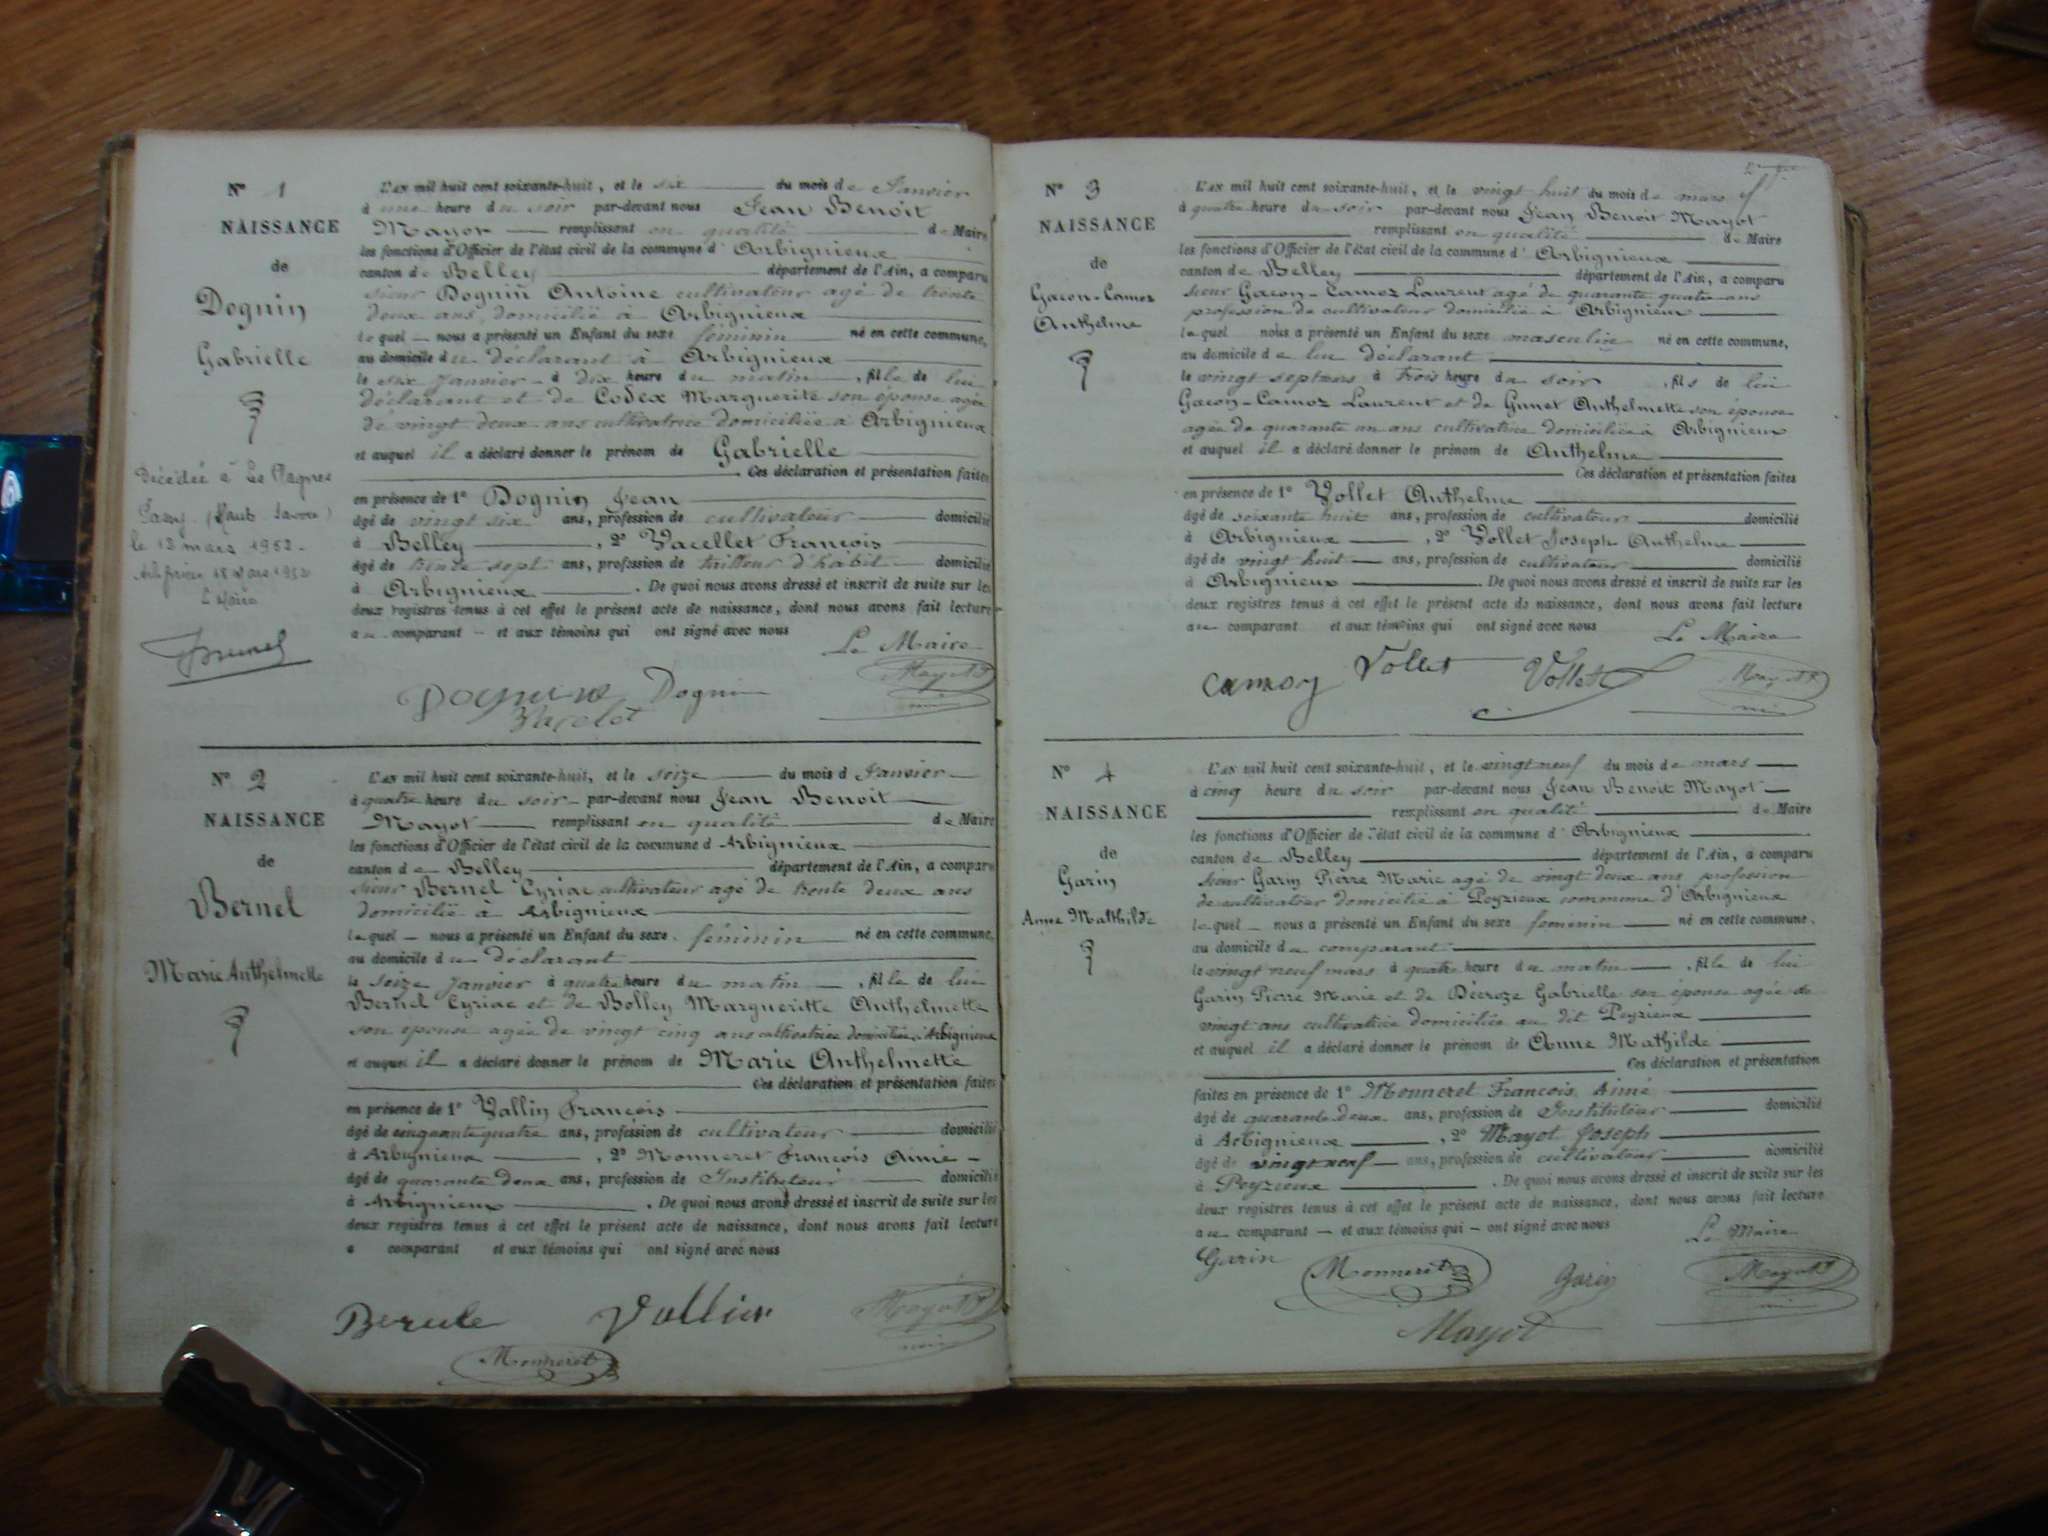 N° 1
NAISSANCE
de
Dognin
Gabrielle
Décédée à
(Haute Savoie)
le 13 mars 1952.
L'AN mil huit cent soixante-huit, et le six du mois de Janvier
à une heure du soir par-devant nous Jean Benoit
Mayot remplissant en qualité de Maire
les fonctions d'Officier de l'état civil de la commune d'Arbignieux
canton de Belley département de l'Ain, a comparu
sieur Dognin Antoine cultivateur agé de trente
deux ans, domicilié à Arbignieux
lequel nous a présenté un Enfant du sexe féminin né en cette commune,
au domicile du déclarant à Arbignieux
le six Janvier à dix heure du matin, fille de lui
déclarant et de Codex Marguerite son épouse agée
de vingt deux ans cultivatrice domiciliée à Arbignieux
et auquel il a déclaré donner le prénom de Gabrielle
Ces déclaration et présentation faites
en présence de 1° Dognin Jean
âgé de vingt six ans, profession de cultivateur domicilié
à Belley, 2° Vacellet François
âgé de trente sept ans, profession de tailleur d'habit domicilié
à Arbignieux. De quoi nous avons dressé et inscrit de suite sur les
deux registres tenus à cet effet le présent acte de naissance, dont nous avons fait lecture
au comparant et aux témoins qui ont signé avec nous
Le Maire
Dognin Mayot
N° 2
NAISSANCE
de
Bernel
Marie Anthelmette
L'AN mil huit cent soixante-huit, et le seize du mois d Janvier
à quatre heure du soir par-devant nous Jean Benoit
Mayot remplissant en qualité de Maire
les fonctions d'Officier de l'état civil de la commune d Arbignieux
canton de Belley département de l'Ain, a comparu
sieur Bernel Cyriac cultivateur agé de trente deux ans
domicilié à Arbignieux
lequel nous a présenté un Enfant du sexe féminin né en cette commune,
au domicile du déclarant
le seize Janvier à quatre heure du matin, fille de lui
Bernel Cyriac et de Bolley Margueritte Anthelmette
son épouse agée de vingt cinq ans cultivatrice domiciliée à Arbignieux
et auquel il a déclaré donner le prénom de Marie Anthelmette
Ces déclaration et présentation faites
en présence de 1° Vallin François
âgé de cinquante quatre ans, profession de cultivateur domicilié
à Arbignieux, 2° Monneret François Aimé
âgé de quarante deux ans, profession de Instituteur domicilié
à Arbignieux. De quoi nous avons dressé et inscrit de suite sur les
deux registres tenus à cet effet le présent acte de naissance, dont nous avons fait lecture
comparant et aux témoins qui ont signé avec nous
Vallin Mayot
Monneret
N° 3
NAISSANCE
de
Gacon-Camoz
Anthelme
L'AN mil huit cent soixante-huit, et le vingt huit du mois de mars
à quatre heure du soir par-devant nous Jean Benoit Mayot
remplissant en qualité de Maire
les fonctions d'Officier de l'état civil de la commune d'Arbignieux
canton de Belley département de l'Ain, a comparu
sieur Gacon-Camoz Laurent agé de quarante quatre ans
profession de cultivateur domicilié à Arbignieux
lequel nous a présenté un Enfant du sexe masculin né en cette commune,
au domicile de lui déclarant
le vingt sept mars à trois heure du soir, fils de lui
Gacon-Camoz Laurent et de Gunet Anthelmette son épouse
agée de quarante un ans cultivatrice domiciliée à Arbignieux
et auquel il a déclaré donner le prénom de Anthelme
Ces déclaration et présentation faites
en présence de 1° Vollet Anthelme
âgé de soixante huit ans, profession de cultivateur domicilié
à Arbignieux, 2° Vollet Joseph Anthelme
âgé de vingt huit ans, profession de cultivateur domicilié
à Arbignieux. De quoi nous avons dressé et inscrit de suite sur les
deux registres tenus à cet effet le présent acte de naissance, dont nous avons fait lecture
au comparant et aux témoins qui ont signé avec nous
Le Maire
Camoz Vollet Vollet Mayot
N° 4
NAISSANCE
de
Garin
Anne Mathilde
L'AN mil huit cent soixante-huit, et le vingt neuf du mois de mars
à cinq heure du soir par-devant nous Jean Benoit Mayot
remplissant en qualité de Maire
les fonctions d'Officier de l'état civil de la commune d'Arbignieux
canton de Belley département de l'Ain, a comparu
sieur Garin Pierre Marie agé de vingt deux ans profession
de cultivateur domicilié à Peyzieux commune d'Arbignieux
lequel nous a présenté un Enfant du sexe feminin né en cette commune.
au domicile du comparant
le vingt neuf mars à quatre heure du matin, fille de lui
Garin Pierre Marie et de Décroze Gabrielle son épouse agée de
vingt ans cultivatrice domiciliée au dit Peyzieux
et auquel il a déclaré donner le prénom de Anne Mathilde
Ces déclaration et présentation
faites en présence de 1° Monneret François Aimé
âgé de quarante deux ans, profession de Instituteur domicilié
à Arbignieux, 2° Mayot Joseph
âgé de vingt neuf ans, profession de cultivateur domicilié
à Peyzieux. De quoi nous avons dressé et inscrit de suite sur les
deux registres tenus à cet effet le présent acte de naissance, dont nous avons fait lecture
au comparant et aux témoins qui ont signé avec nous
Le Maire
Garin Monneret Garin Mayot
Mayot